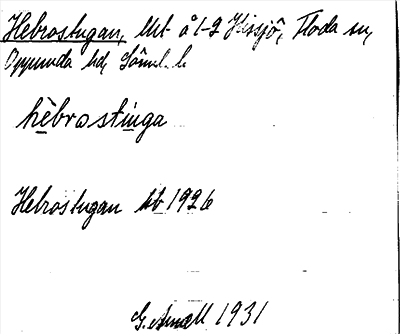 Hebrostugan, lht å 1-2 Kissjö, Floda sn,
Oppunda hd, Söml. l.
hèbrostinga
Hebrostugan kb 1926
G. Amell 1931